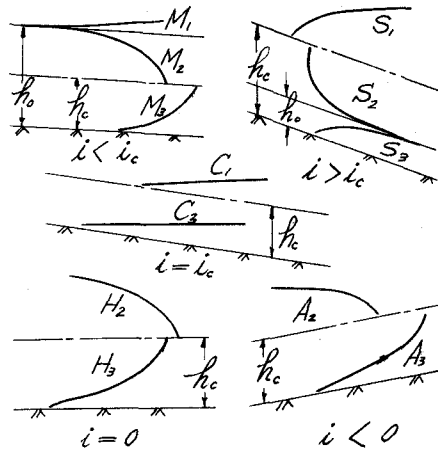 M₁
M₂
M₃
h₀
h_c
i < i_c
S₁
S₂
S₃
h_c
h₀
i > i_c
C₁
C₃
h_c
i = i_c
H₂
H₃
h_c
i = 0
A₂
A₃
h_c
i < 0